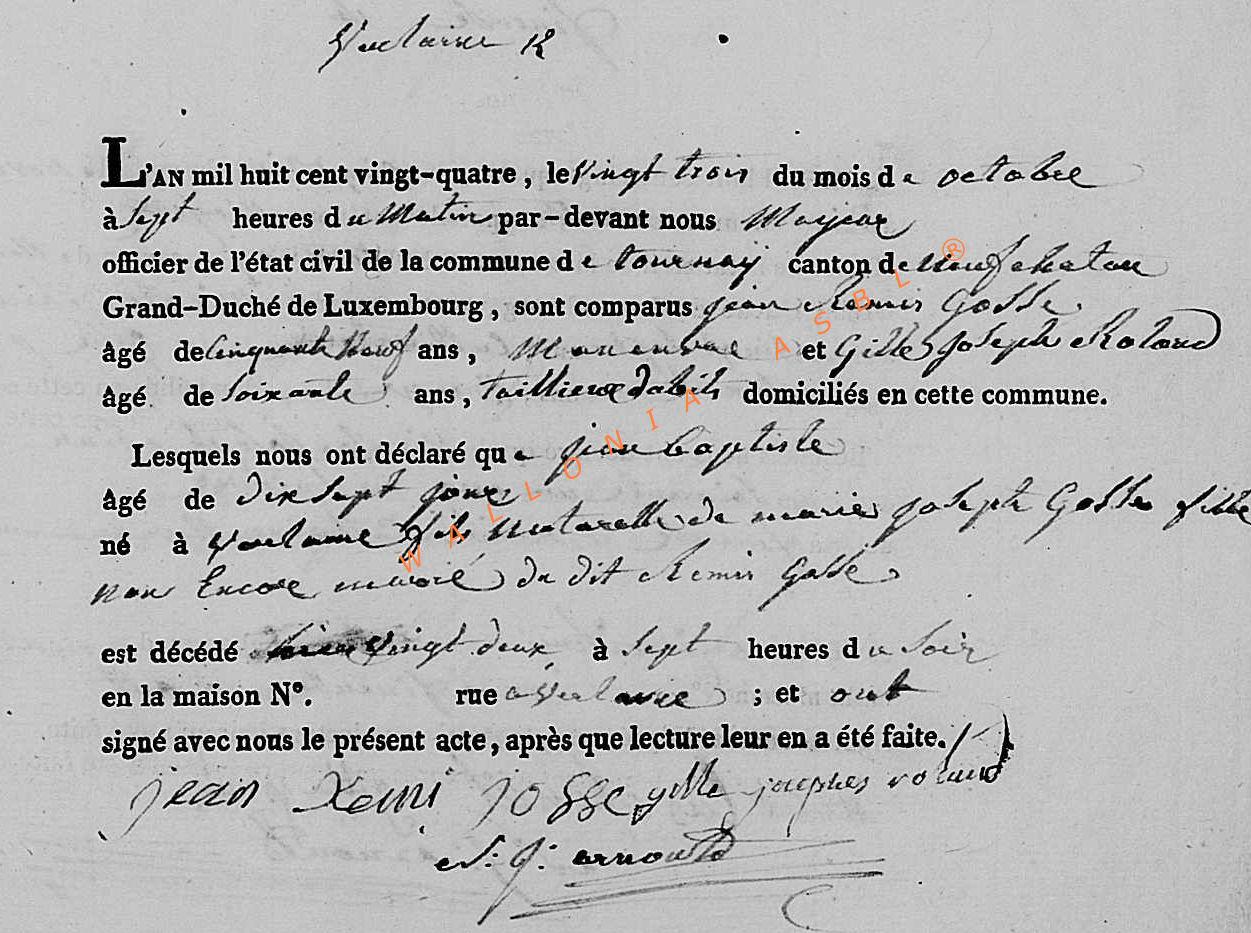 Verlaine 12
L'AN mil huit cent vingt-quatre, le vingt trois du mois de octobre
à Sept heures du Matin par-devant nous Mayeur
officier de l'état civil de la commune de tournay canton de neufchatau
Grand-Duché de Luxembourg, sont comparus jean Remis Gosse
âgé de Cinquante Neuf ans, et Gille joseph Roland
âgé de Soixante ans, taillieur dabits domiciliés en cette commune.
Lesquels nous ont déclaré que jean baptiste
âgé de dix Sept jours
né à Verlaine fils naturelle de marie joseph Gosse fille
non Encore marié du dit Remis Gosse
est décédé vingt deux à Sept heures du Soir
en la maison N°. rue a Verlaine ; et ont
signé avec nous le présent acte, après que lecture leur en a été faite.
jean Remi josse gille josephes roland
N: J: arnould
WALLONIA ASBL ®